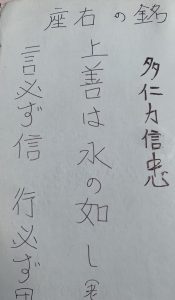 座右の銘
多仁力信忠
上善は水の如し
言必ず信 行必ず